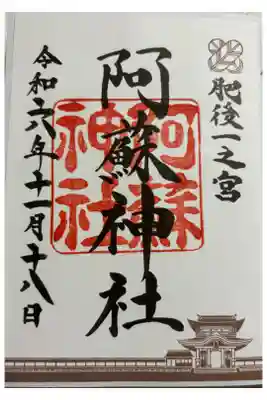 肥後一之宮
阿蘇神社
阿蘇神社
令和六年十一月十八日